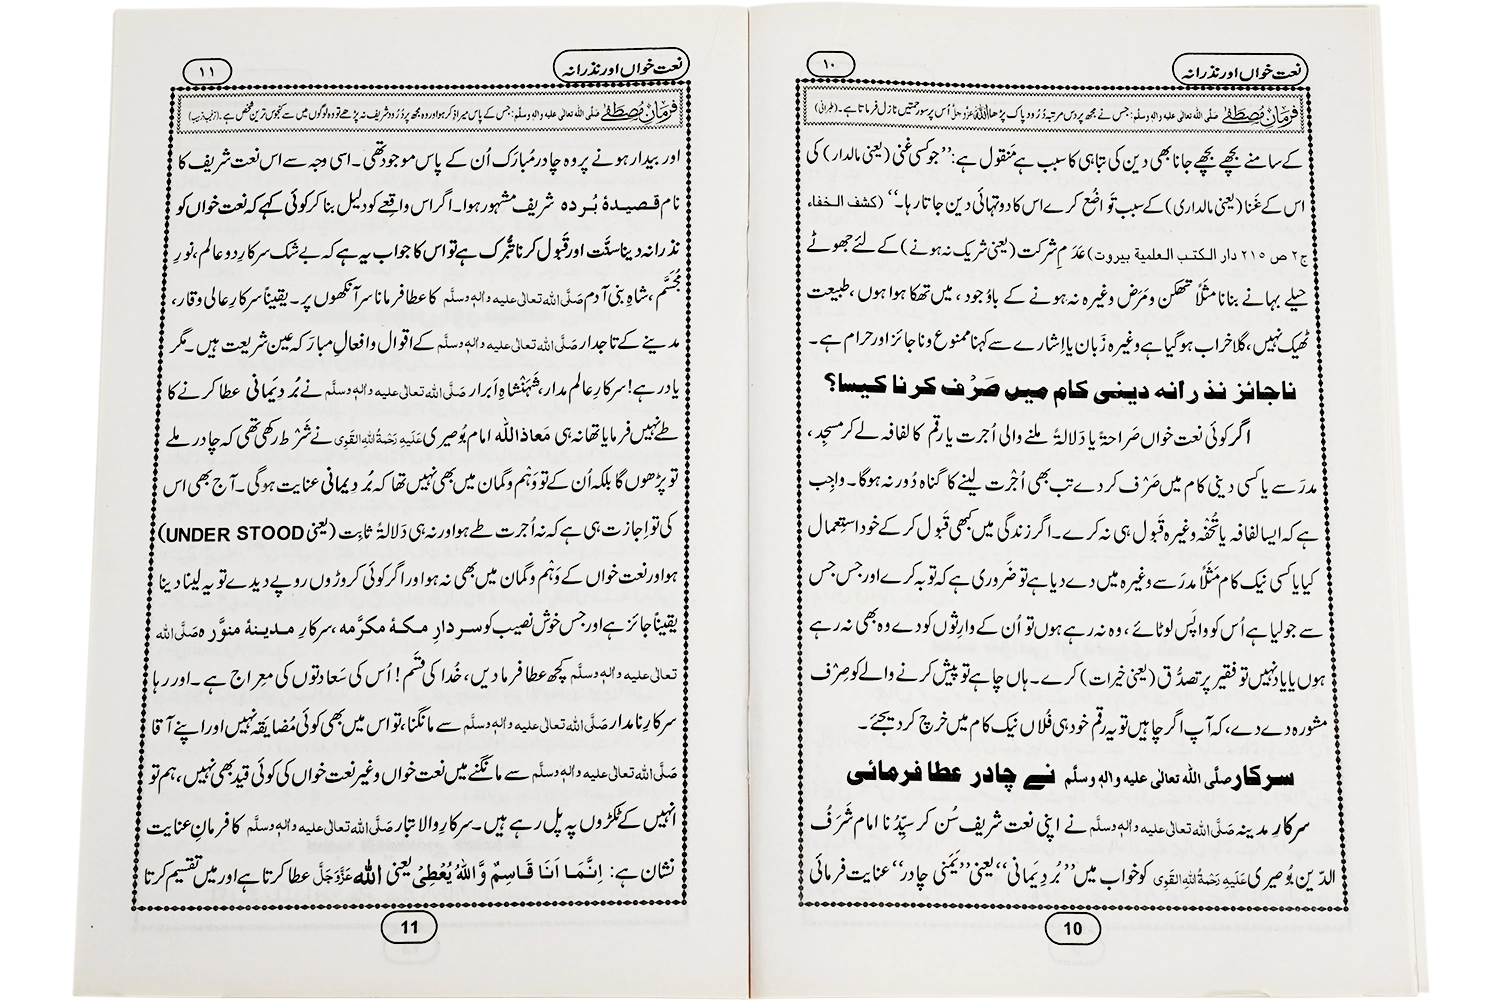 نعت خواں اور نذرانہ
۱۰
فرمانِ مصطفےٰ صلَّی اللہ تعالیٰ علیہ والہٖ وسلَّم: جس نے مجھ پر دس مرتبہ دُرُود پاک پڑھا اللہ عَزَّوَجَلَّ اُس پر سو رحمتیں نازل فرماتا ہے۔ (طبرانی)
کے سامنے بچھے بچھے جانا بھی دین کی تباہی کا سبب ہے مَنقول ہے: ’’جو کسی غنی (یعنی مالدار) کی
اس کے غَنا (یعنی مالداری) کے سبب تواضُع کرے اس کا دو تہائی دین جاتا رہا۔‘‘ (کشف الخفاء
ج۲ ص ۲۱۵ دار الکتب العلمیة بیروت) عَدَمِ شرکت (یعنی شریک نہ ہونے) کے لئے جھوٹے
حیلے بہانے بنانا مثلاً تھکن و مَرَض وغیرہ نہ ہونے کے باوُجود، میں تھکا ہوا ہوں، طبیعت
ٹھیک نہیں، گلا خراب ہو گیا ہے وغیرہ زَبان یا اِشارے سے کہنا ممنوع و ناجائز اور حرام ہے۔
ناجائز نذرانہ دینی کام میں صَرْف کرنا کیسا؟
اگر کوئی نعت خواں صَراحۃً یا دَلالۃً ملنے والی اُجرت یا رقم کا لفافہ لے کر مسجِد،
مدرَسے یا کسی دینی کام میں صَرْف کر دے تب بھی اُجْرت لینے کا گناہ دُور نہ ہوگا۔ واجِب
ہے کہ ایسا لفافہ یا تُحْفہ وغیرہ قَبول ہی نہ کرے۔ اگر زندگی میں کبھی قَبول کر کے خود استِعمال
کیا یا کسی نیک کام مَثَلاً مدرَسے وغیرہ میں دے دیا ہے تو ضَروری ہے کہ توبہ کرے اور جس جس
سے جو لیا ہے اُس کو واپَس لوٹائے، وہ نہ رہے ہوں تو اُن کے وارِثوں کو دے وہ بھی نہ رہے
ہوں یا یاد نہیں تو فقیر پر تصدُّق (یعنی خیرات) کرے۔ ہاں چاہے تو پیش کرنے والے کو صِرْف
مشورہ دے دے، کہ آپ اگر چاہیں تو یہ رقم خود ہی فُلاں نیک کام میں خرچ کر دیجئے۔
سرکار صلَّی اللہ تعالیٰ علیہ والہٖ وسلَّم نے چادر عطا فرمائی
سرکارِ مدینہ صلَّی اللہ تعالیٰ علیہ والہٖ وسلَّم نے اپنی نعت شریف سُن کر سیِّدُنا امام شَرَفُ
الدّین بُوصیری عَلَیہِ رَحْمَۃُ اللہِ القَوِی کو خواب میں ’’بُردِ یَمانی‘‘ یعنی ’’یَمَنی چادر‘‘ عنایت فرمائی
10
نعت خواں اور نذرانہ
۱۱
فرمانِ مصطفےٰ صلَّی اللہ تعالیٰ علیہ والہٖ وسلَّم: جس کے پاس میرا ذکر ہو اور وہ مجھ پر دُرُود شریف نہ پڑھے تو وہ لوگوں میں سے کنجوس ترین شخص ہے۔ (ترغیب ترہیب)
اور بیدار ہونے پر وہ چادرِ مُبارَک اُن کے پاس موجود تھی۔ اسی وجہ سے اس نعت شریف کا
نام قصیدۂ بُردہ شریف مشہور ہوا۔ اگر اس واقِعے کو دلیل بنا کر کوئی کہے کہ نعت خواں کو
نذرانہ دینا سنّت اور قَبول کرنا تبَرُّک ہے تو اس کا جواب یہ ہے کہ بے شک سرکارِ دو عالم، نورِ
مُجَسَّم، شاہِ بنی آدم صَلَّی اللہ تعالیٰ علیہ والہٖ وسلَّم کا عطا فرمانا سر آنکھوں پر۔ یقیناً سرکارِ عالی وقار،
مدینے کے تاجدار صَلَّی اللہ تعالیٰ علیہ والہٖ وسلَّم کے اقوال و افعالِ مبارَکہ عین شریعت ہیں۔ مگر
یاد رہے! سرکارِ عالم مدار، شَہَنْشاہِ اَبرار صَلَّی اللہ تعالیٰ علیہ والہٖ وسلَّم نے بُردِ یَمانی عطا کرنے کا
طے نہیں فرمایا تھا نہ ہی مَعاذَ اللہ امام بُوصیری عَلَیہِ رَحْمَۃُ اللہِ القَوِی نے شَرْط رکھی تھی کہ چادر ملے
تو پڑھوں گا بلکہ اُن کے تو وَہْم و گمان میں بھی نہیں تھا کہ بُردِ یمانی عنایت ہوگی۔ آج بھی اس
کی تو اِجازت ہی ہے کہ نہ اُجرت طے ہو اور نہ ہی دَلالۃً ثابِت (یعنی UNDER STOOD)
ہو اور نعت خواں کے وَہْم و گمان میں بھی نہ ہو اور اگر کوئی کروڑوں روپے دیدے تو یہ لینا دینا
یقیناً جائز ہے اور جس خوش نصیب کو سردارِ مکّۂ مکرَّمہ، سرکارِ مدینۂ منوَّرہ صَلَّی اللہ
تعالیٰ علیہ والہٖ وسلَّم کچھ عطا فرما دیں، خُدا کی قَسَم! اُس کی سَعادتوں کی مِعراج ہے۔ اور رہا
سرکارِ نامدار صَلَّی اللہ تعالیٰ علیہ والہٖ وسلَّم سے مانگنا، تو اس میں بھی کوئی مُضایَقہ نہیں اور اپنے آقا
صَلَّی اللہ تعالیٰ علیہ والہٖ وسلَّم سے مانگنے میں نعت خواں و غیرِ نعت خواں کی کوئی قید بھی نہیں، ہم تو
انہیں کے ٹکڑوں پہ پل رہے ہیں۔ سرکارِ والا تبار صَلَّی اللہ تعالیٰ علیہ والہٖ وسلَّم کا فرمانِ عنایت
نشان ہے: اِنَّمَا اَنَا قَاسِمٌ وَّاللہُ یُعْطِیْ یعنی اللہ عَزَّوَجَلَّ عطا کرتا ہے اور میں تقسیم کرتا
11